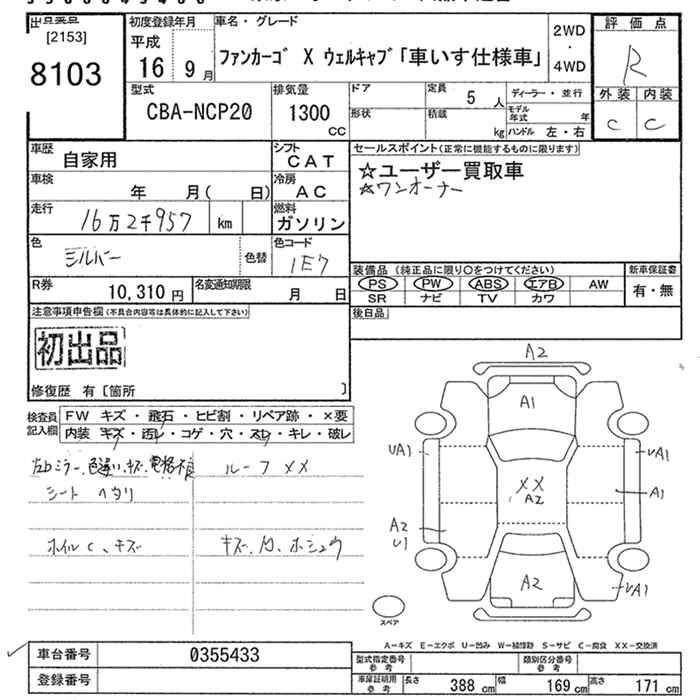 出品番号
[2153]
8103
初度登録年月
平成
16 9月
車名・グレード
ファンカーゴ X ウェルキャブ「車いす仕様車」
2WD
・
4WD
評価点
R
外装 内装
C C
型式
CBA-NCP20
排気量
1300
CC
ドア
定員 5 人
形状
積載 kg
ディーラー・並行
モデル年式 年
ハンドル 左・右
車歴 自家用
シフト CAT
車検 年 月( 日)
冷房 AC
走行 16万2千957 km
燃料 ガソリン
色 シルバー
色替
色コード 1E7
R券 10,310 円
名変通知期限 月 日
セールスポイント(正常に機能するものに限ります)
☆ユーザー買取車
☆ワンオーナー
装備品(純正品に限り○をつけてください)
PS PW ABS エアB AW
SR ナビ TV カワ
新車保証書
有・無
後日品
注意事項申告欄(不具合内容等は具体的に記入して下さい)
初出品
修復歴 有[箇所 ]
検査員記入欄
FW キズ・飛石・ヒビ割・リペア跡・×要
内装 キズ・汚レ・コゲ・穴・スレ・キレ・破レ
ルーフ XX
シート ヘタリ
ホイルC、キズ
A2
A1
UA1
UA1
XX
A2
A1
A2
U1
A2
UA1
スペア
A-キズ E-エクボ U-凹み W-補修跡 S-サビ C-腐食 XX-交換済
車台番号 0355433
登録番号
型式指定番号 参考
類別区分番号 参考
車庫証明用 参考
長さ 388 cm
幅 169 cm
高さ 171 cm